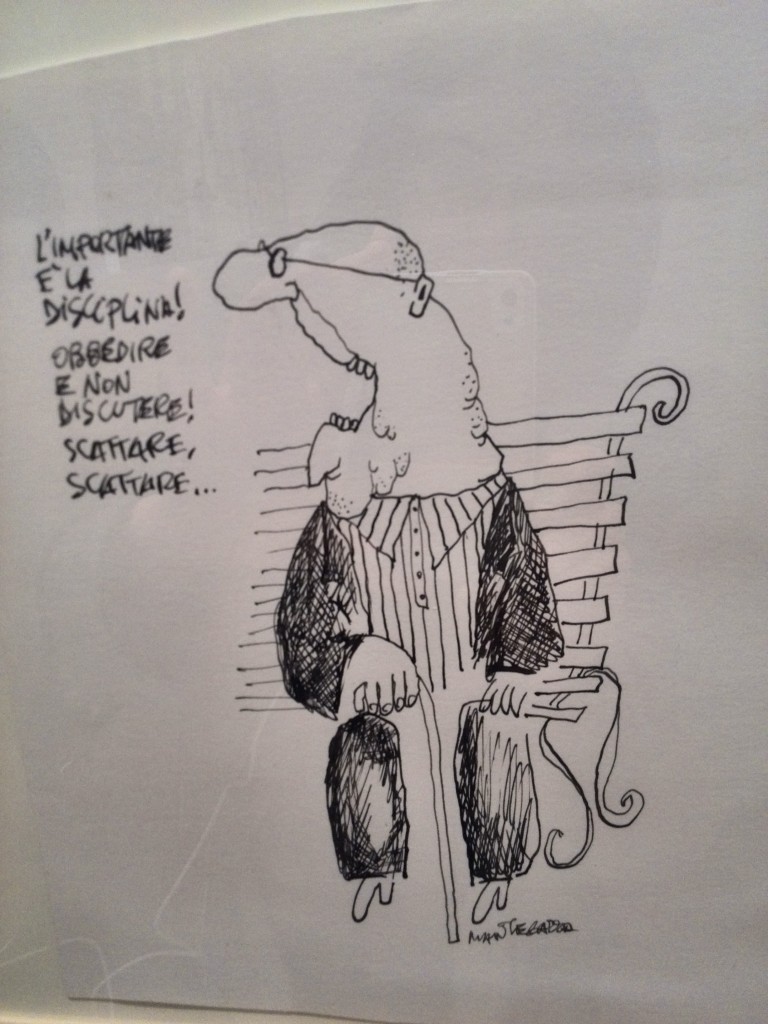 L'IMPORTANTE
È LA
DISCIPLINA!
OBBEDIRE
E NON
DISCUTERE!
SCATTARE,
SCATTARE...